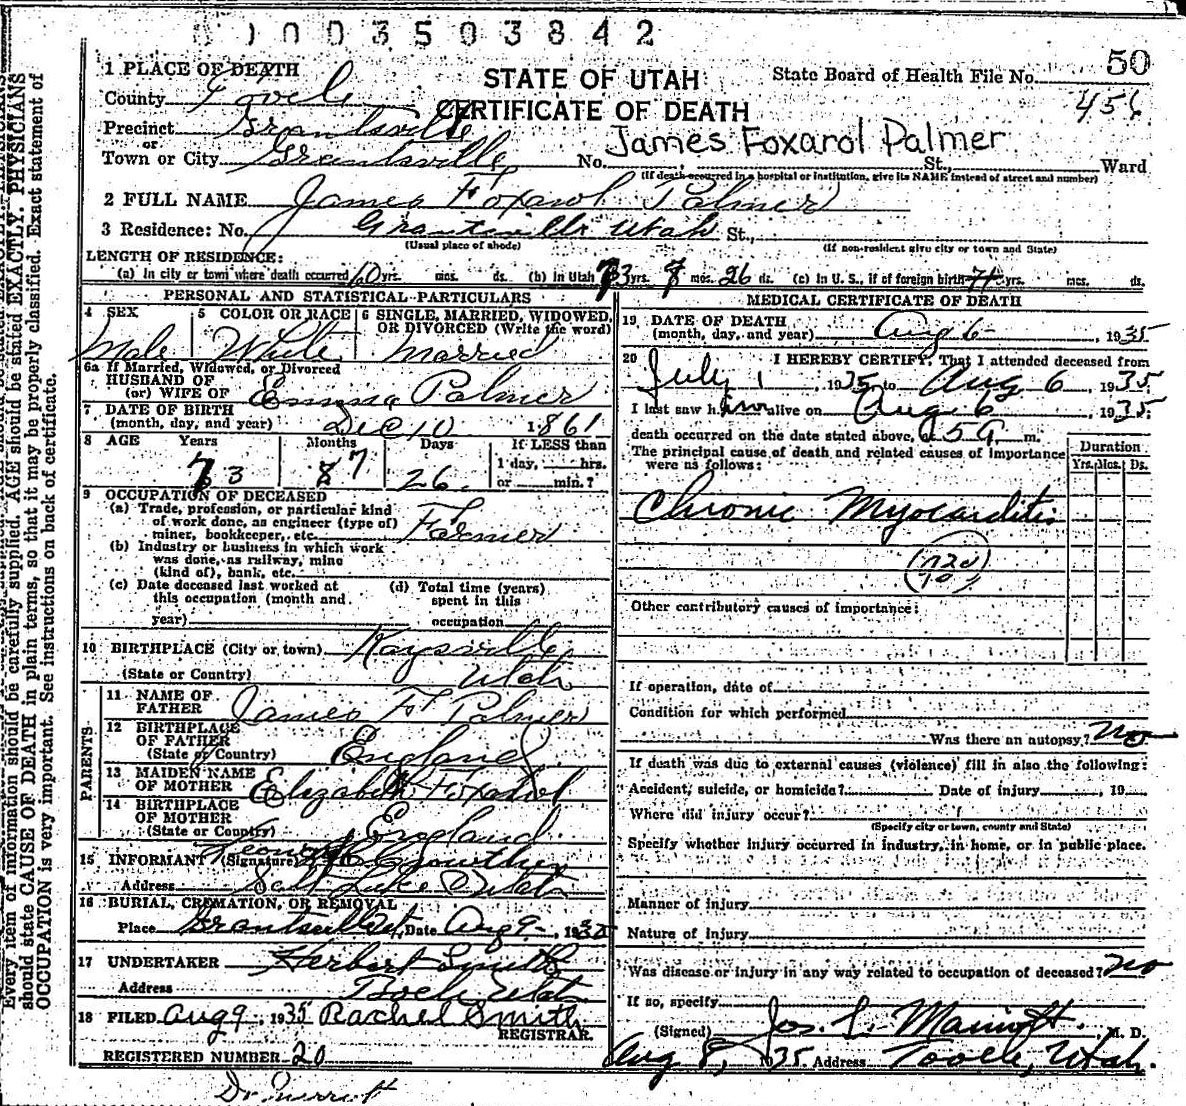 0100 3503842
50
1 PLACE OF DEATH
STATE OF UTAH
State Board of Health File No.
456
County Tooele
CERTIFICATE OF DEATH
Precinct Grantsville
James Foxarol Palmer
or
Town or City Grantsville No. St., Ward
(If death occurred in a hospital or institution, give its NAME instead of street and number)
2 FULL NAME James F. Foxarol Palmer
3 Residence: No. Grantsville Utah St.,
(Usual place of abode) (If non-resident give city or town and State)
LENGTH OF RESIDENCE:
(a) In city or town where death occurred 60 yrs. mos. ds. (b) In Utah 73 yrs. 7 mos. 26 ds. (c) In U. S., if of foreign birth yrs. mos. ds.
PERSONAL AND STATISTICAL PARTICULARS
4 SEX 5 COLOR OR RACE 6 SINGLE, MARRIED, WIDOWED, OR DIVORCED (Write the word)
Male White Married
6a If Married, Widowed, or Divorced
HUSBAND OF
(or) WIFE OF Emma Palmer
7 DATE OF BIRTH
(month, day, and year) Dec 10 1861
8 AGE Years Months Days If LESS than
1 day, hrs.
73 7 26 or min.?
9 OCCUPATION OF DECEASED
(a) Trade, profession, or particular kind
of work done, as engineer (type of)
miner, bookkeeper, etc. Farmer
(b) Industry or business in which work
was done, as railway, mine
(kind of), bank, etc.
(c) Date deceased last worked at
this occupation (month and
year)
(d) Total time (years)
spent in this
occupation
10 BIRTHPLACE (City or town) Kaysville
(State or Country) Utah
PARENTS
11 NAME OF
FATHER James F. Palmer
12 BIRTHPLACE
OF FATHER
(State or Country) England
13 MAIDEN NAME
OF MOTHER Elizabeth Foxarol
14 BIRTHPLACE
OF MOTHER
(State or Country) England
15 INFORMANT (Signature) Crowther
Address Salt Lake Utah
16 BURIAL, CREMATION, OR REMOVAL
Place Grantsville Ut, Date Aug 9 - 1935
17 UNDERTAKER Herbert Smith
Address Tooele, Utah
18 FILED Aug 9, 1935 Rachel Smith
REGISTRAR.
REGISTERED NUMBER 20
MEDICAL CERTIFICATE OF DEATH
19 DATE OF DEATH
(month, day, and year) Aug 6, 1935
20 I HEREBY CERTIFY, That I attended deceased from
July 1, 1935, to Aug 6, 1935
I last saw him alive on Aug 6, 1935
death occurred on the date stated above, m.
The principal cause of death and related causes of importance
were as follows:
Duration
Yrs. Mos. Ds.
Chronic Myocarditis
Other contributory causes of importance:
If operation, date of
Condition for which performed
Was there an autopsy? No
If death was due to external causes (violence) fill in also the following:
Accident, suicide, or homicide? Date of injury , 19
Where did injury occur?
(Specify city or town, county and State)
Specify whether injury occurred in industry, in home, or in public place.
Manner of injury
Nature of injury
Was disease or injury in any way related to occupation of deceased? No
If so, specify
(Signed) Jos. M. D.
Aug 8, 1935 Address Tooele, Utah.
Every item of information should be carefully supplied. AGE should be stated EXACTLY. PHYSICIANS
should state CAUSE OF DEATH in plain terms, so that it may be properly classified. Exact statement of
OCCUPATION is very important. See instructions on back of certificate.